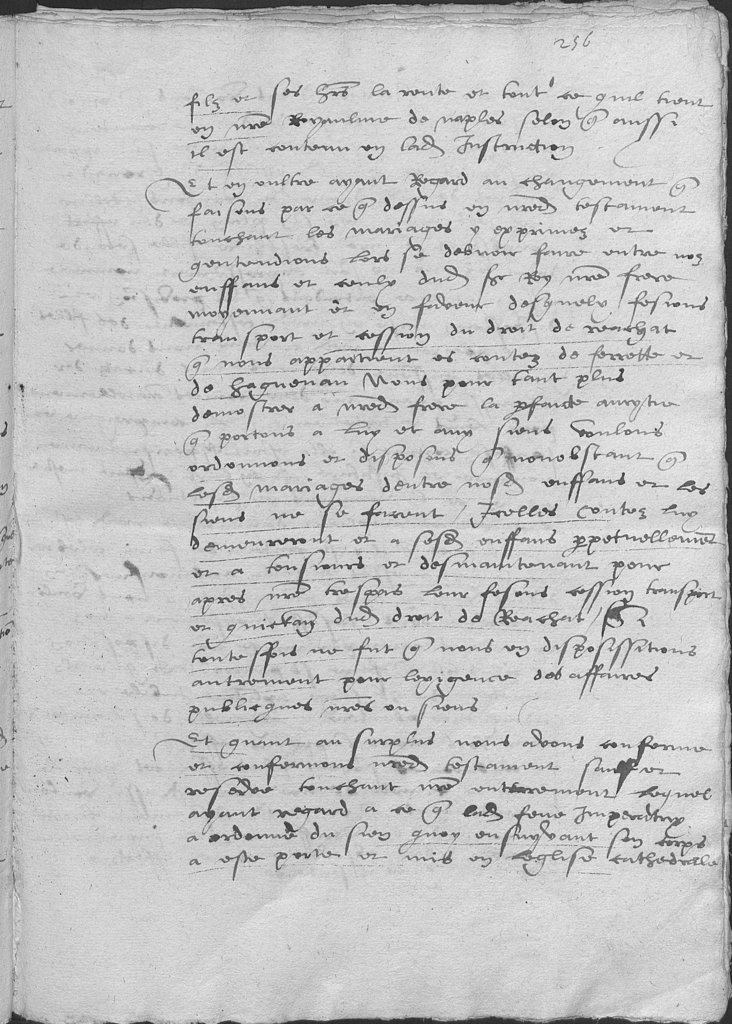 256
filz et ses hrs la rente et tout ce quil tient
en nre Royaulme de naples selon q aussi
il est contenu en lad Instruction
Et en oultre ayant Regard au changement q
faisons par ce q dessus en nred testament
touchant les mariages y exprimez et
qentendions lors se debvoir faire entre noz
enffans et ceulx dud sr Roy nre frere
moyennant et en faveur desquelz fesions
transport et cession du droit de reachat
q nous appartient es contez de ferrette et
de haguenau Nous pour tant plus
demostrer a nred frere la pfaicte amytie
q portons a luy et aux siens voulons
ordonnons et disposons q nonobstant q
lesd mariages dentre nosd enffans et les
siens ne se facent Icelles Contez luy
demeureront et a sesd enffans ppetuellement
et a tousiours et desmaintenant pour
apres nre trespas leur fesons cession transport
et quictance dud droit de Reachat Si
toutesffois ne fut q nous en disposissions
autrement pour lexigence des affaires
publicques nres ou siens
Et quant au surplus nous avons conferme
et confermons nred testament sauff et
reserve touchant nre enterrement lequel
ayant regard a ce q lad feue Imperatrix
a ordonne du sien quoy ensuyvant son corps
a este porte et mis en leglise cathedralle